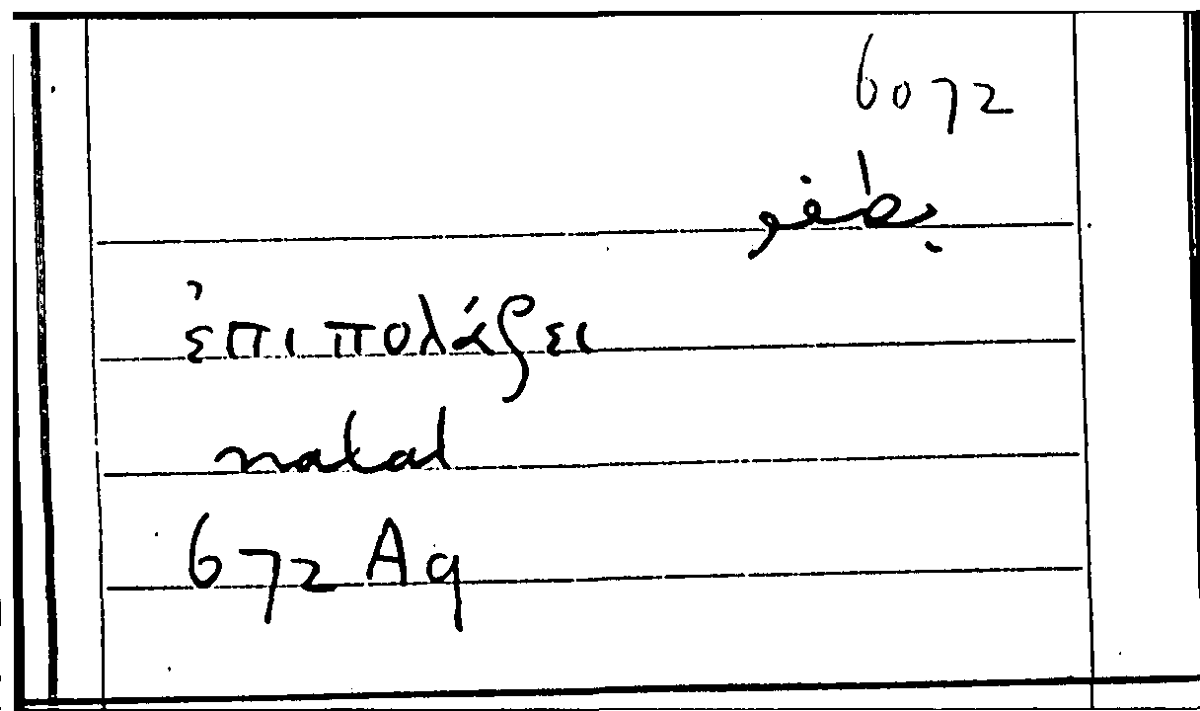 6072
يطفو
ἐπιπολάζει
natat
672 Aq